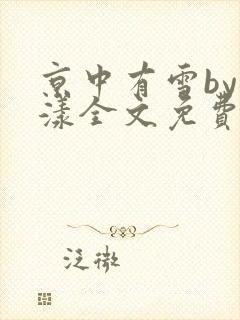 京中有雪by
漾全文免费
泛微